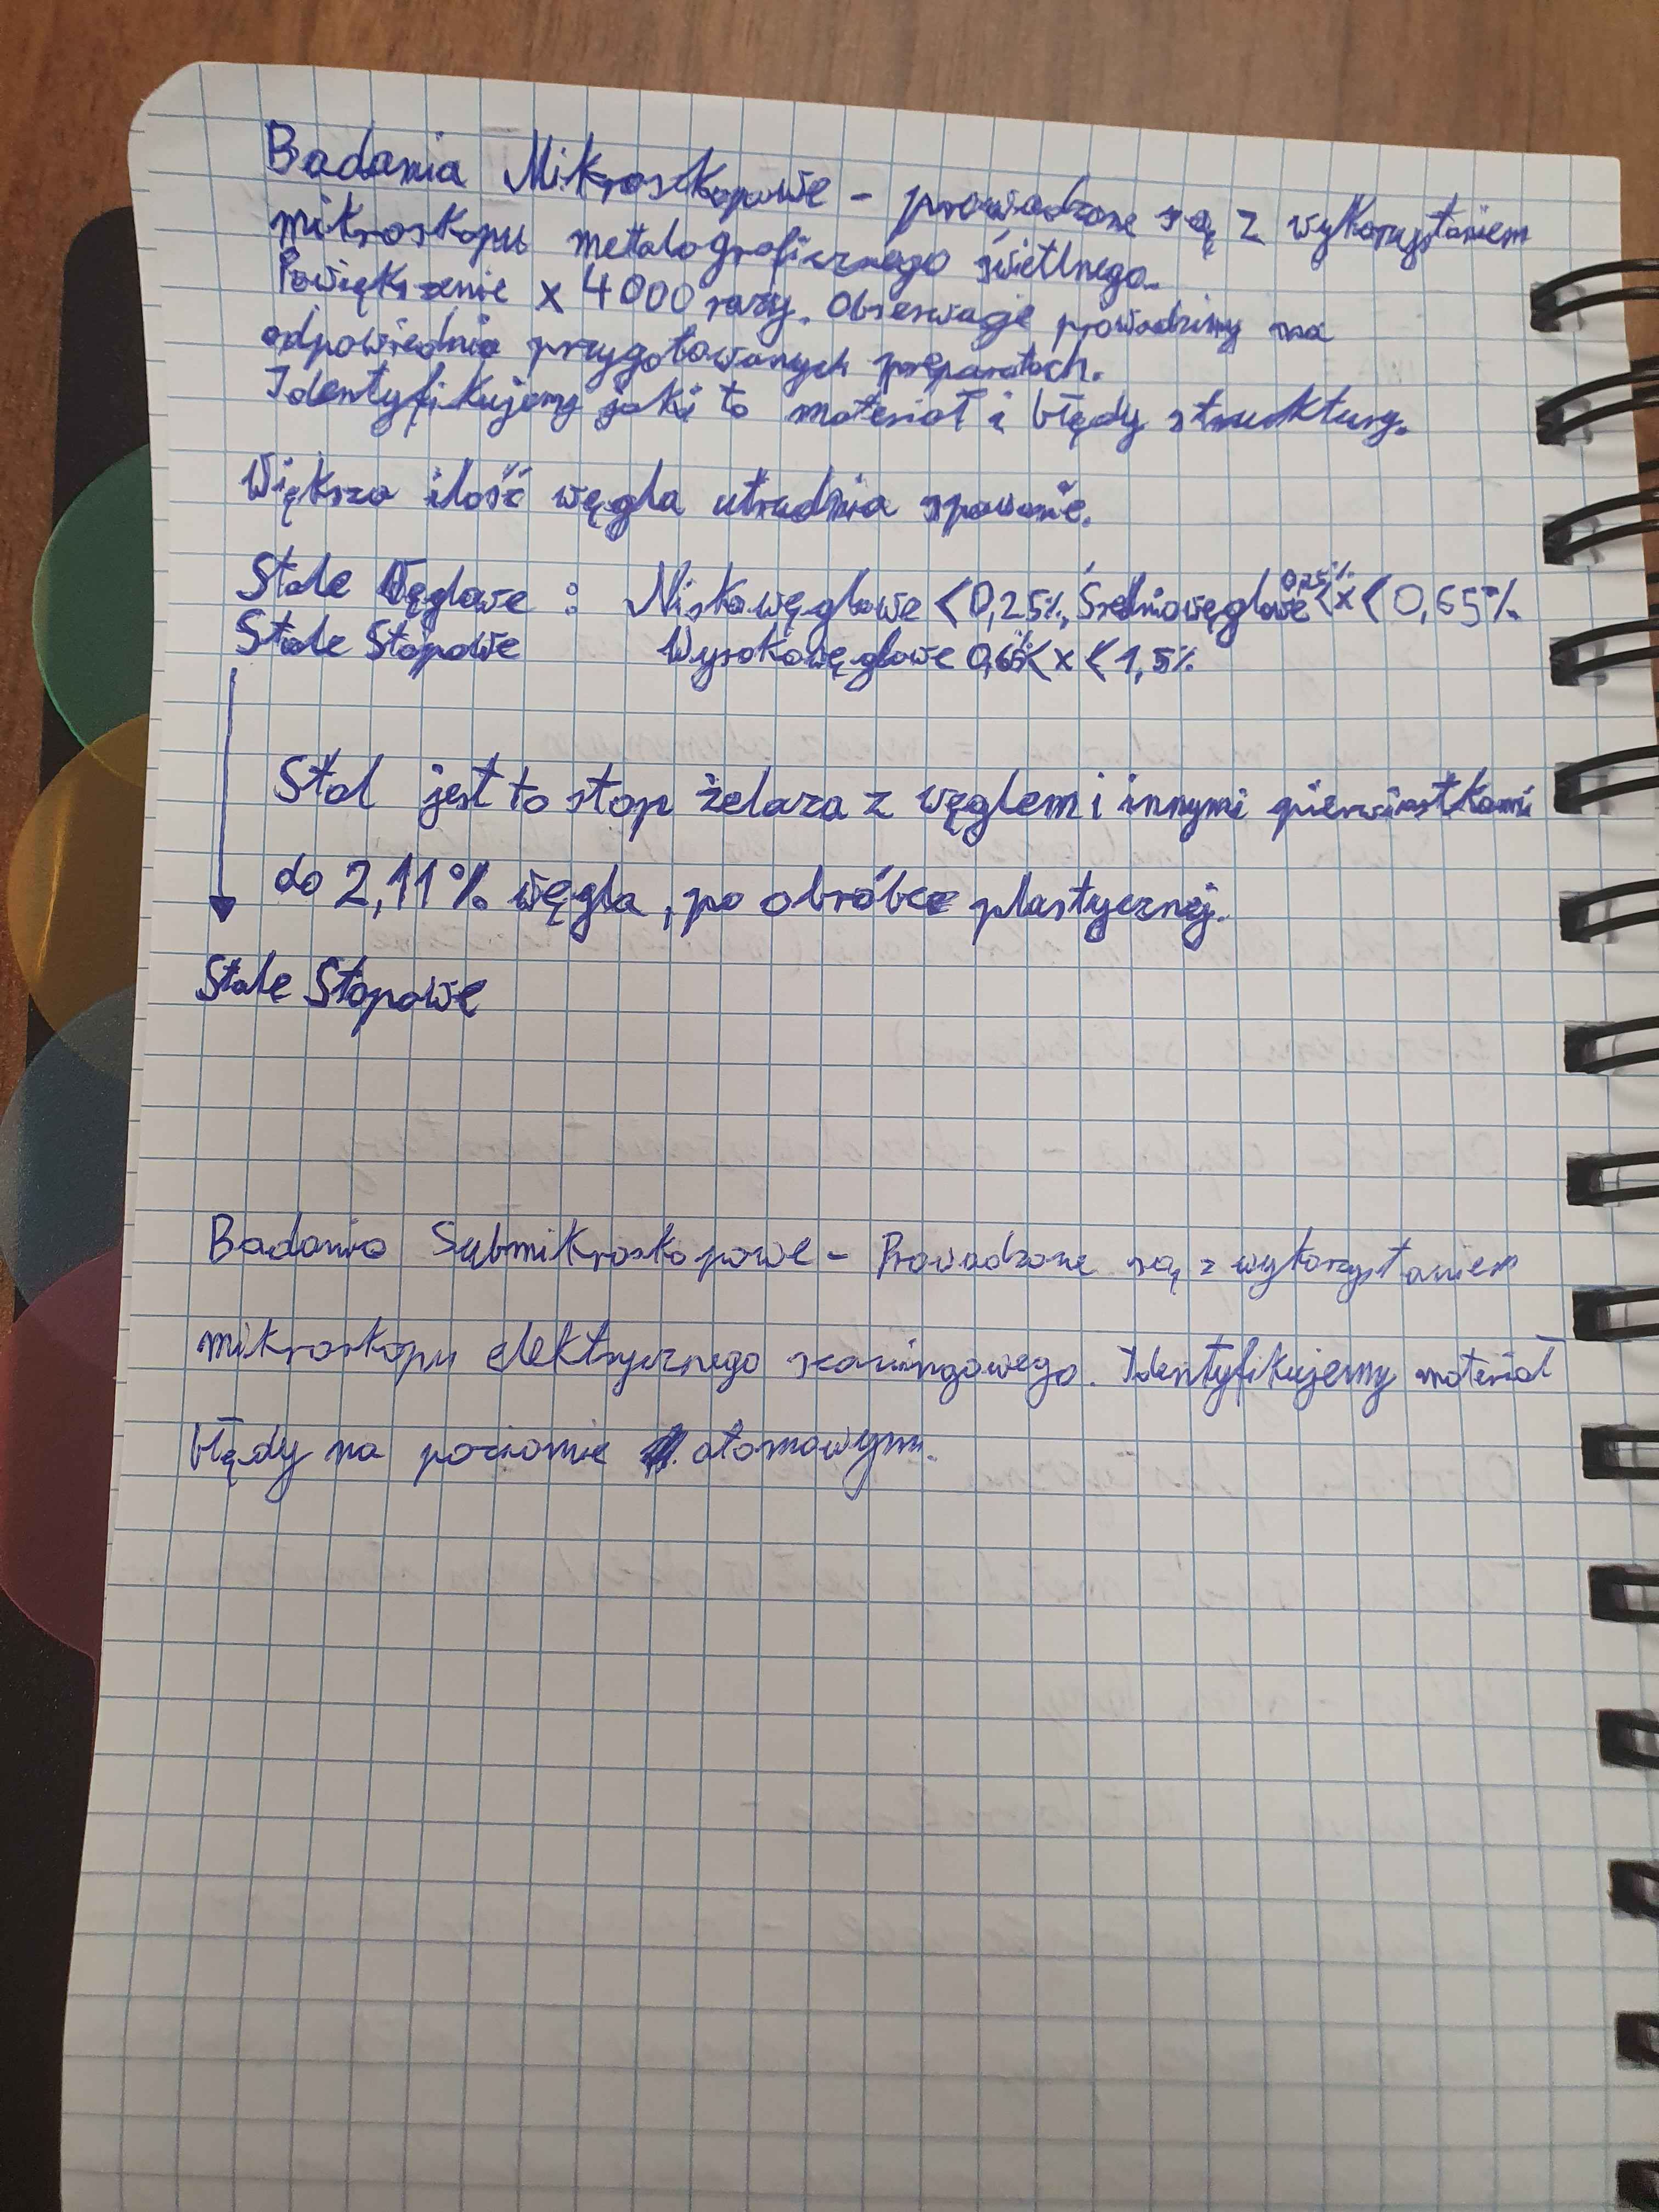 Badania Mikroskopowe - prowadzone są z wykorzystaniem
mikroskopu metalograficznego świetlnego.
Powiększenie x 4000 razy. Obserwacje prowadzimy na
odpowiednio przygotowanych preparatach.
Identyfikujemy jaki to materiał i błędy struktury.
Większa ilość węgla utrudnia spawanie.
Stale Węglowe : Niskowęglowe <0,25%, Średniowęglowe 0,25% < x < 0,65%
Stale Stopowe Wysokowęglowe 0,65% < x < 1,5%
Stal jest to stop żelaza z węglem i innymi pierwiastkami
do 2,11% węgla, po obróbce plastycznej.
Stale Stopowe
Badania Submikroskopowe - Prowadzone są z wykorzystaniem
mikroskopu elektrycznego skaningowego. Identyfikujemy materiał
błędy na poziomie atomowym.